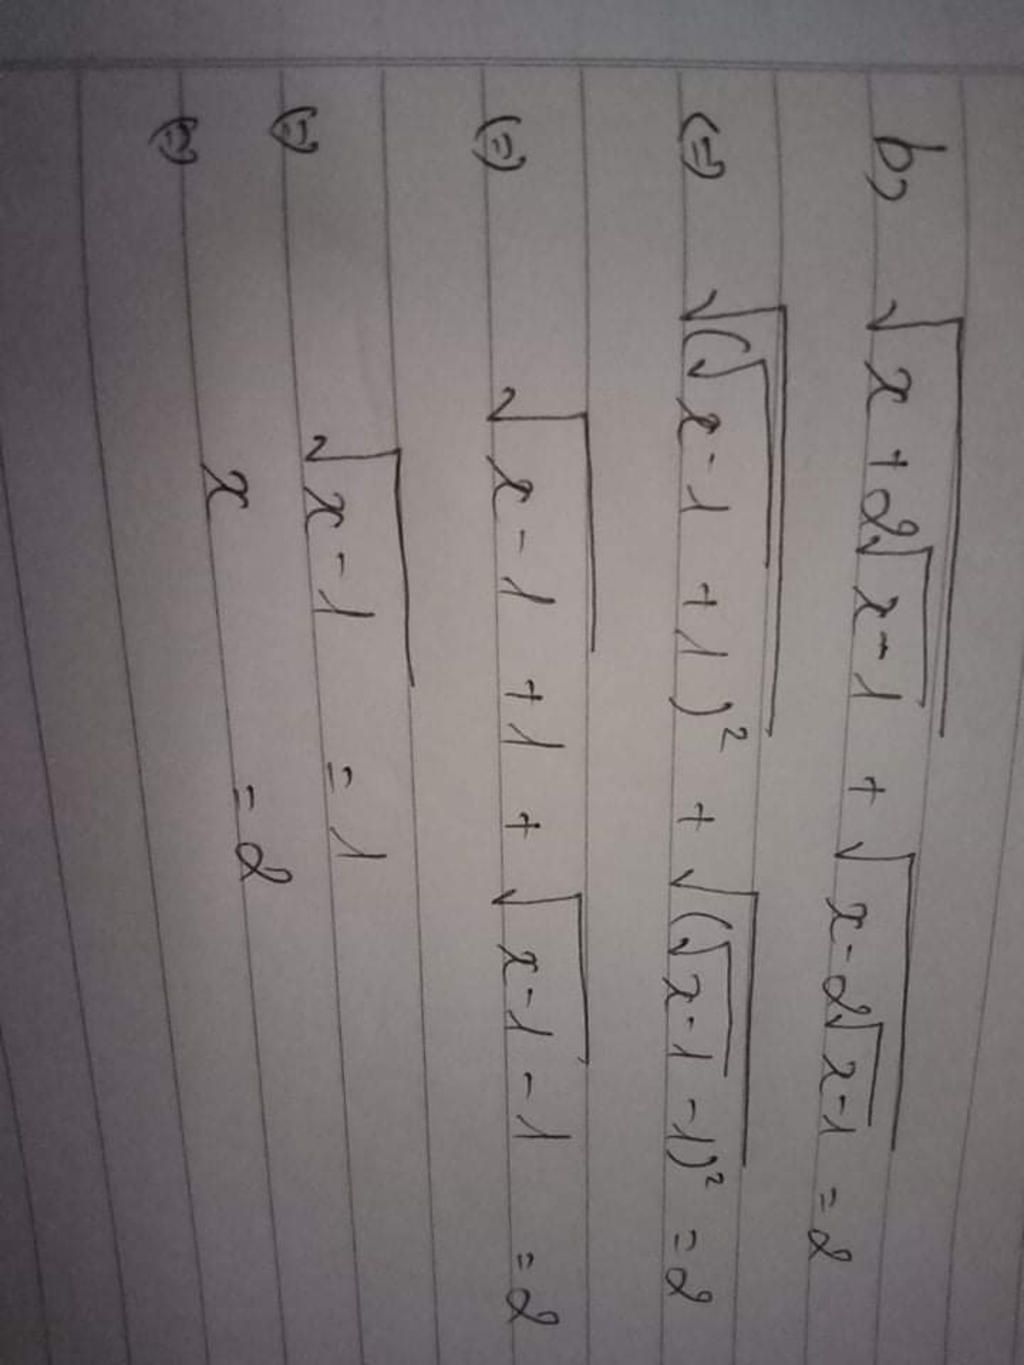 b, √(x + 2√(x-1)) + √(x - 2√(x-1)) = 2
(=) √((√(x-1) + 1)²) + √((√(x-1) - 1)²) = 2
(=) √(x-1) + 1 + √(x-1) - 1 = 2
(=) √(x-1) = 1
(=) x = 2